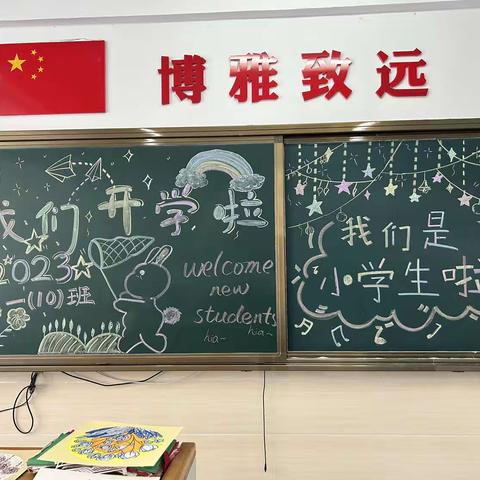 博雅致远
我们开学啦
2023
一(10)班
welcome
new
students
hia~
hia~
我们是
小学生啦